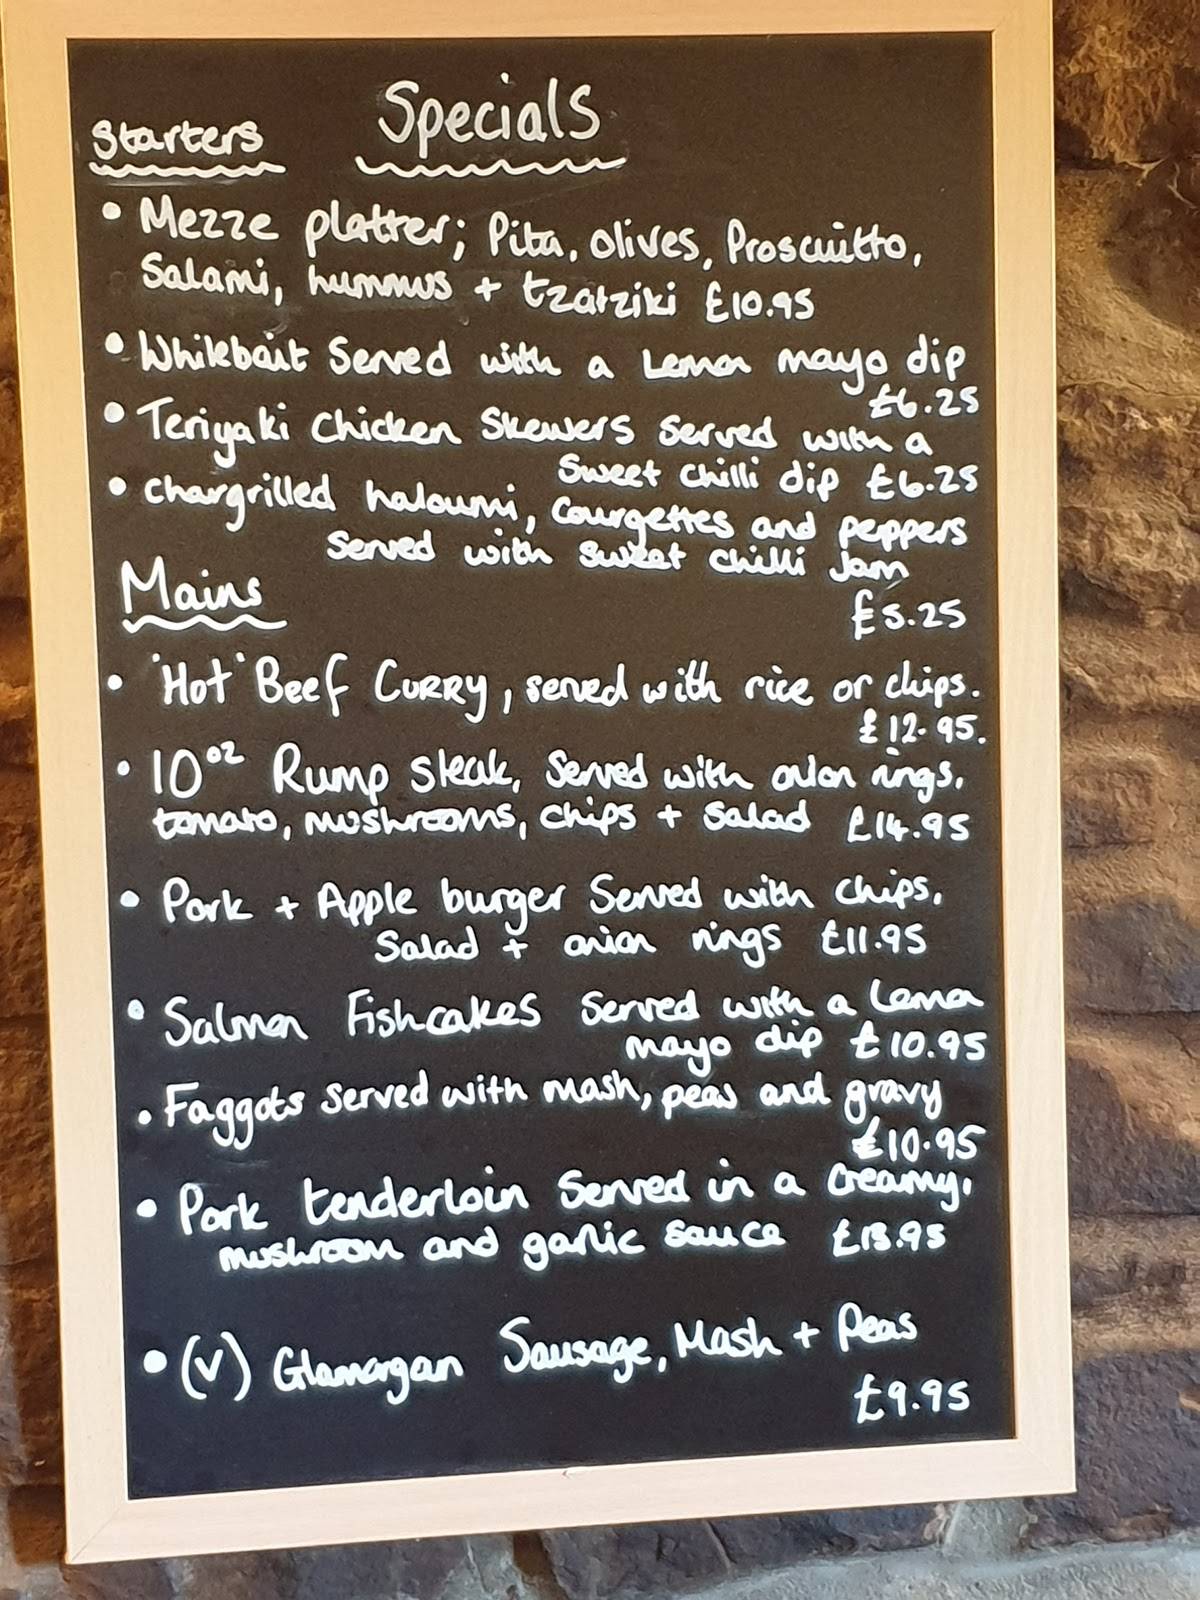 Specials
Starters
• Mezze platter; Pita, olives, Proscuitto,
Salami, hummus + tzatziki £10.95
• Whitebait Served with a Lemon mayo dip
£6.25
• Teriyaki Chicken Skewers Served with a
Sweet Chilli dip £6.25
• Chargrilled haloumi, Courgettes and peppers
Served with Sweet Chilli Jam
£5.25
Mains
• 'Hot' Beef CURRY, served with rice or chips.
£12.95.
• 10oz Rump Steak, Served with onion rings,
tomato, mushrooms, chips + Salad £14.95
• Pork + Apple burger Served with chips,
Salad + onion rings £11.95
• Salmon Fishcakes Served with a Lemon
mayo dip £10.95
• Faggots served with mash, peas and gravy
£10.95
• Pork tenderloin Served in a Creamy,
mushroom and garlic Sauce £13.95
• (V) Glamorgan Sausage, Mash + Peas
£9.95